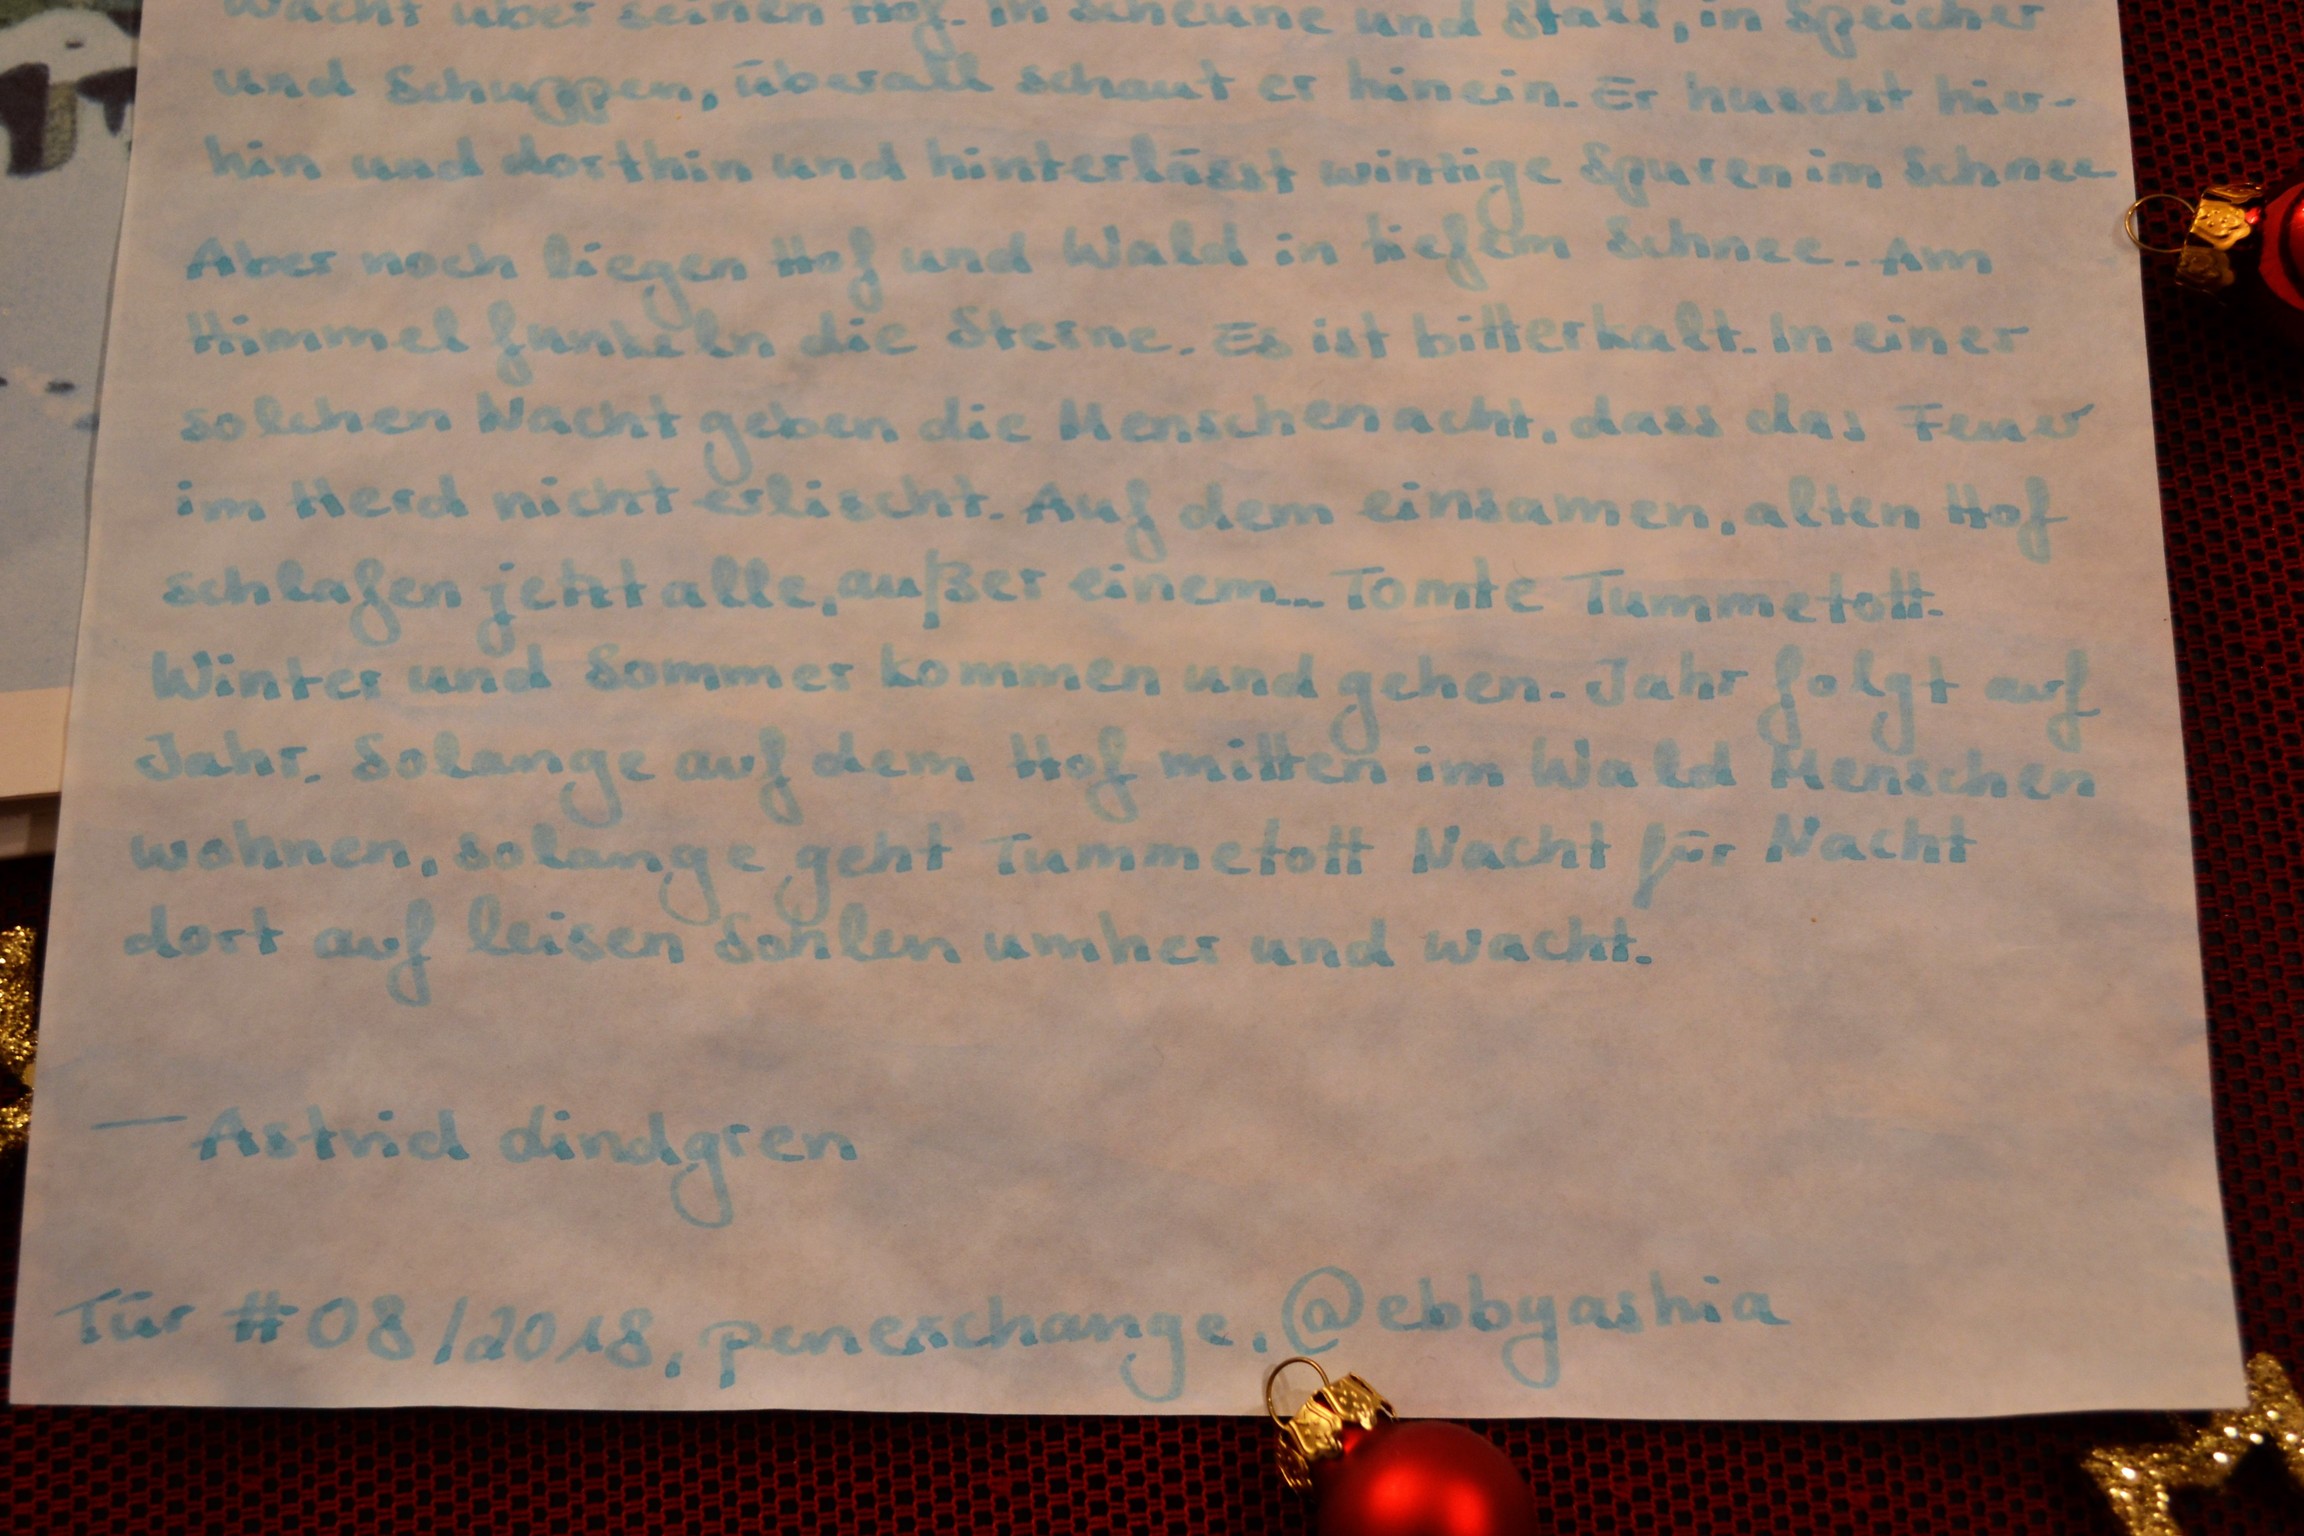 Wacht über seinen Hof. In Scheune und Stall, in Speicher
und Schuppen, überall schaut er hinein. Er huscht hier-
hin und dorthin und hinterlässt winzige Spuren im Schnee
Aber noch liegen Hof und Wald in tiefem Schnee. Am
Himmel funkeln die Sterne. Es ist bitterkalt. In einer
solchen Nacht geben die Menschen acht, dass das Feuer
im Herd nicht erlischt. Auf dem einsamen, alten Hof
schlafen jetzt alle, außer einem... Tomte Tummetott.
Winter und Sommer kommen und gehen. Jahr folgt auf
Jahr. Solange auf dem Hof mitten im Wald Menschen
wohnen, solange geht Tummetott Nacht für Nacht
dort auf leisen Sohlen umher und wacht.
— Astrid Lindgren
Tür #08/2018, penexchange, @ebbyashia